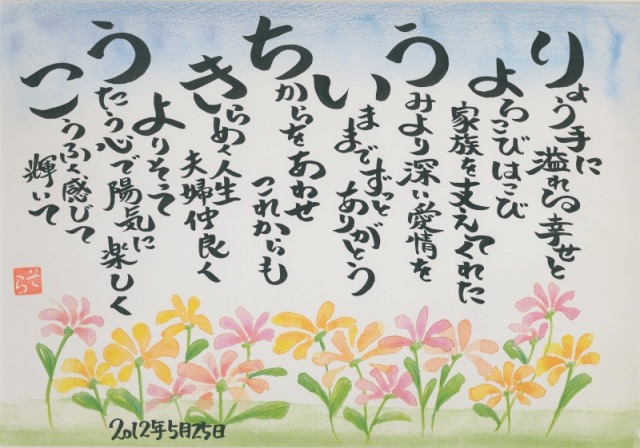 りょう手に
溢れる幸せと
よろこびはこび
家族を支えてくれた
うみより深い愛情を
いままでずっと
ありがとう
ちからをあわせ
これからも
きらめく人生
夫婦仲良く
よりそって
うたう心で陽気に
楽しく
こうふく感じて
輝いて
そら
2012年5月25日